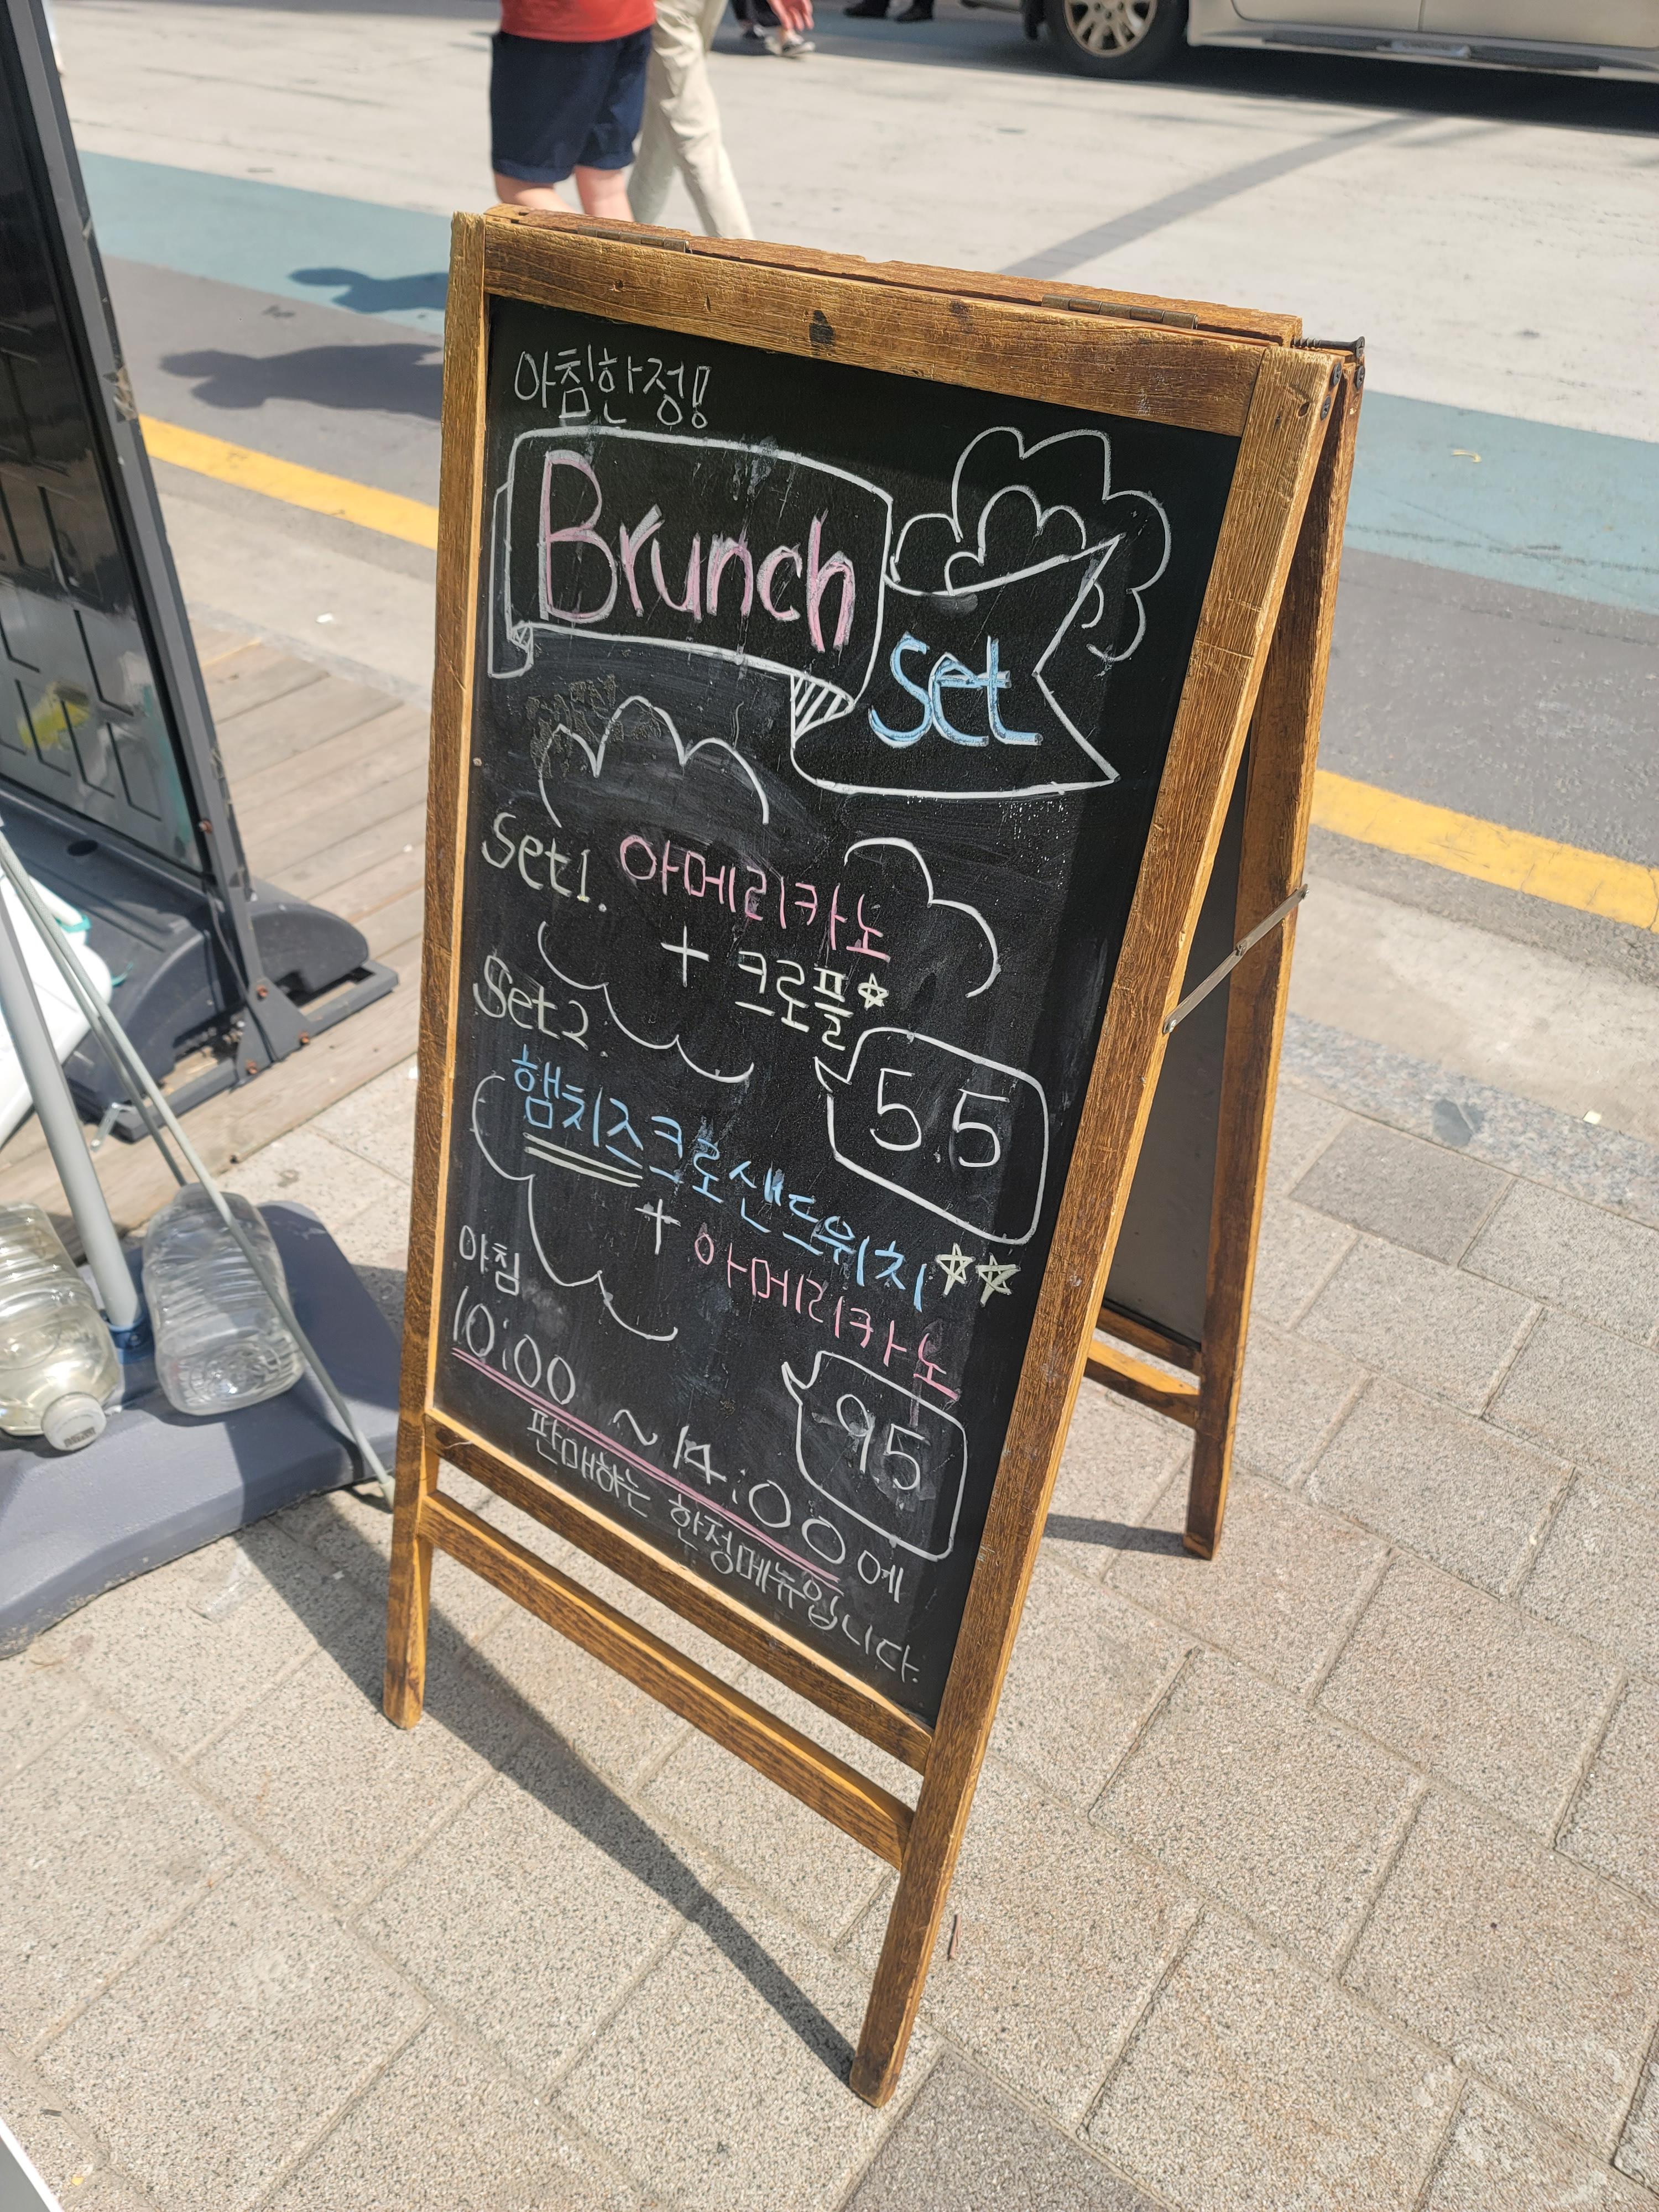 아침한정!
Brunch
Set
Set1. 아메리카노
+ 크로플
5.5
Set2.
햄치즈크로샌드위치
+ 아메리카노
9.5
아침
10:00 ~ 14:00에
판매하는 한정메뉴입니다.